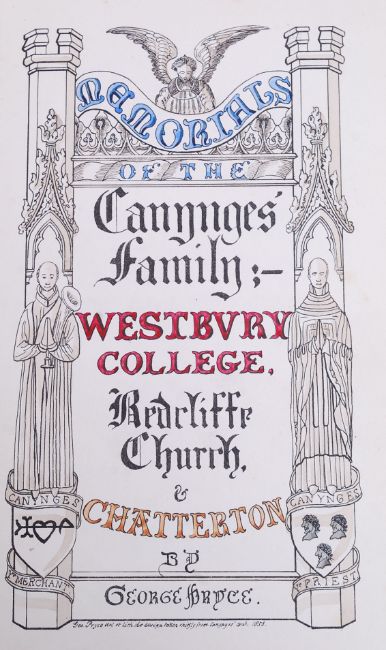 MEMORIALS
OF THE
Canynges'
Family;-
WESTBVRY
COLLEGE,
Redcliffe
Church,
&
CHATTERTON
CANYNGES
MERCHANT
CANYNGES
PRIEST
BY
GEORGE PRYCE.
Geo. Pryce del. et lith. the design taken chiefly from Canynges' tomb. 1853.